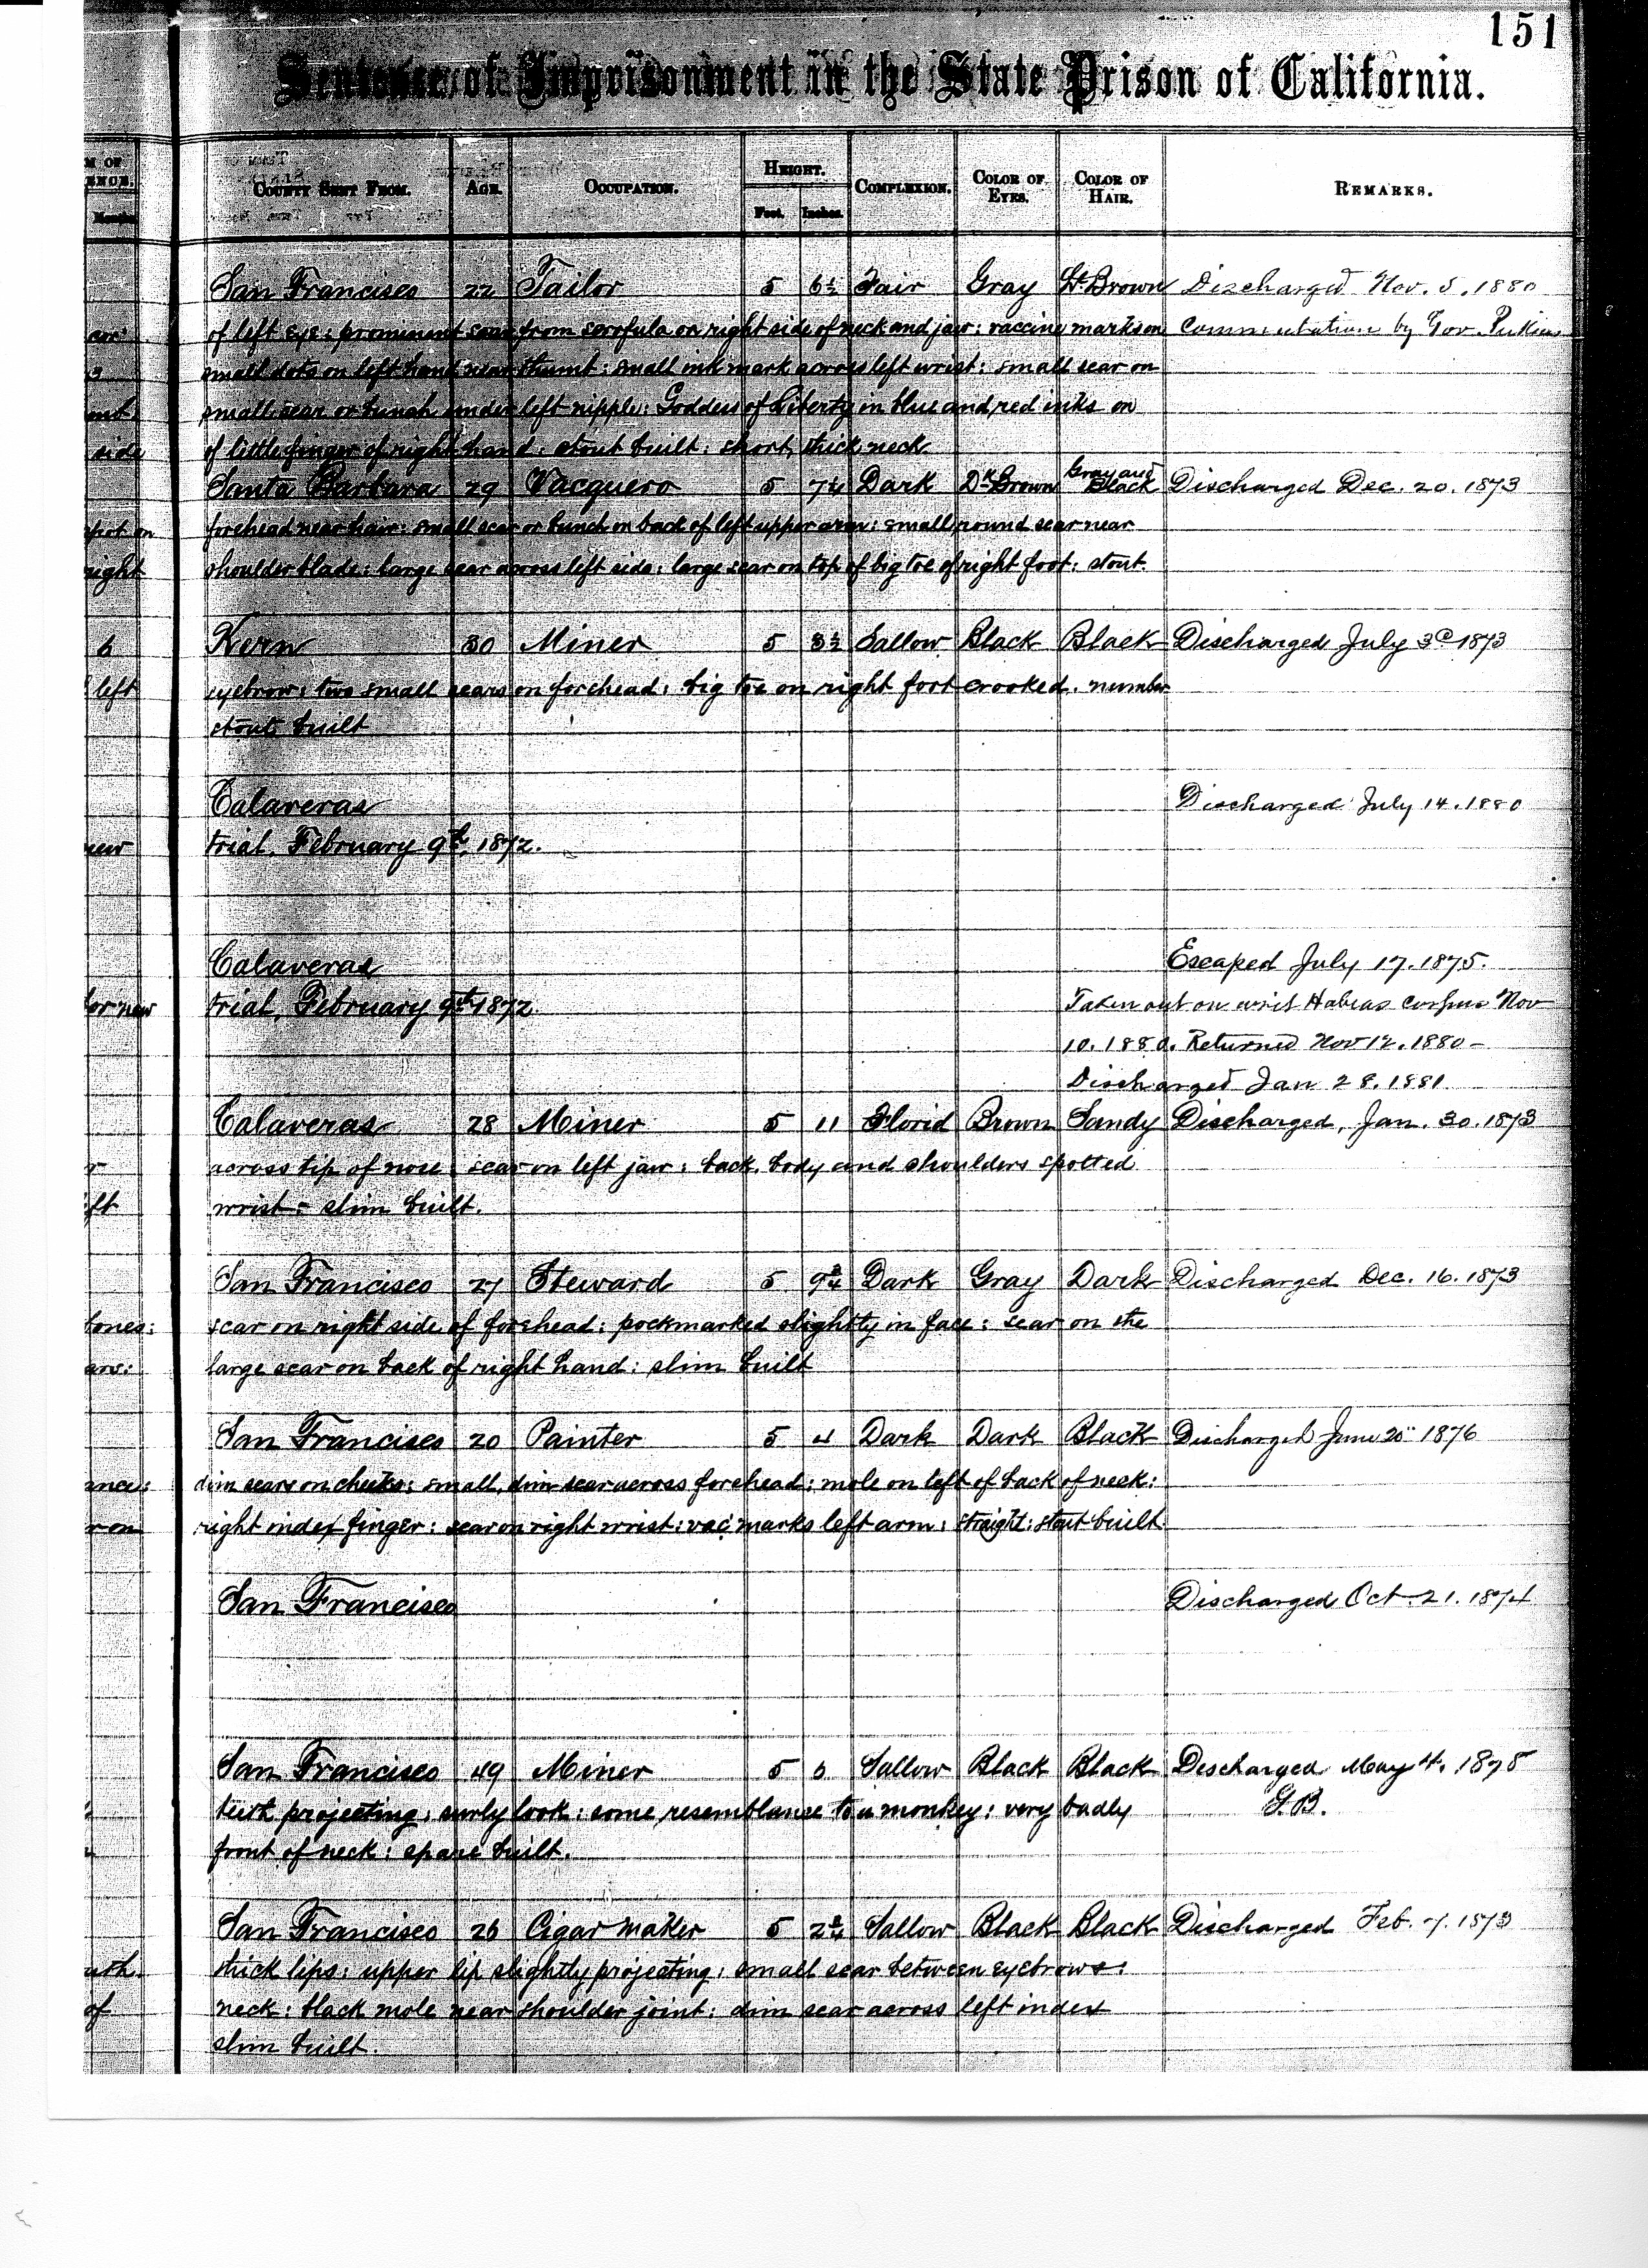 151
Sentence of Imprisonment in the State Prison of California.
M OF ENCE. Months.
COUNTY SENT FROM. AGE. OCCUPATION. HEIGHT. Feet. Inches. COMPLEXION. COLOR OF EYES. COLOR OF HAIR. REMARKS.
San Francisco 22 Tailor 5 6½ Fair Gray Lt. Brown Discharged Nov. 5. 1880
of left eye: prominent scar from scrofula on right side of neck and jaw: vaccine marks on Commutation by Gov. Perkins
small dots on left hand near thumb: small ink mark across left wrist: small scar on
small scar or bunch under left nipple: Goddess of Liberty in blue and red inks on
side of little finger of right hand: stout built: short, thick neck
Santa Barbara 29 Vacquero 5 7¼ Dark Dk Brown Gray and Black Discharged Dec. 20. 1873
spot on forehead near hair: small scar or bunch on back of left upper arm: small round scar near
right shoulder blade: large scar across left side: large scar on top of big toe of right foot: stout.
6 Kern 30 Miner 5 3½ Sallow Black Black Discharged July 3d 1873
left eyebrow: two small scars on forehead: big toe on right foot crooked. number
stout built
Calaveras Discharged July 14. 1880
new trial, February 9th, 1872.
Calaveras Escaped July 17. 1875.
for new trial, February 9th 1872. Taken out on writ Habeas Corpus Nov
10. 1880. Returned Nov 12. 1880 -
Discharged Jan 28. 1881
Calaveras 28 Miner 5 11 Florid Brown Sandy Discharged, Jan. 30. 1873
across tip of nose: scar on left jaw: back, body and shoulders spotted
wrist - slim built.
San Francisco 27 Steward 5 9¾ Dark Gray Dark Discharged Dec. 16. 1873
bones: scar on right side of forehead: pockmarked slightly in face: scar on the
large scar on back of right hand: slim built
San Francisco 20 Painter 5 4 Dark Dark Black Discharged June 20" 1876
dim scars on cheeks: small, dim scar across forehead: mole on left of back of neck:
right index finger: scar on right wrist: vac. marks left arm: straight: stout built.
San Francisco Discharged Oct 21. 1874
San Francisco 49 Miner 5 Sallow Black Black Discharged May 4. 1878
teeth projecting: surly look: some resemblance to a monkey: very badly G.B.
front of neck: spare built.
San Francisco 26 Cigar maker 5 2¾ Sallow Black Black Discharged Feb. 7. 1873
thick lips: upper lip slightly projecting: small scar between eyebrows:
of neck: black mole near shoulder joint: dim scar across left index
slim built.